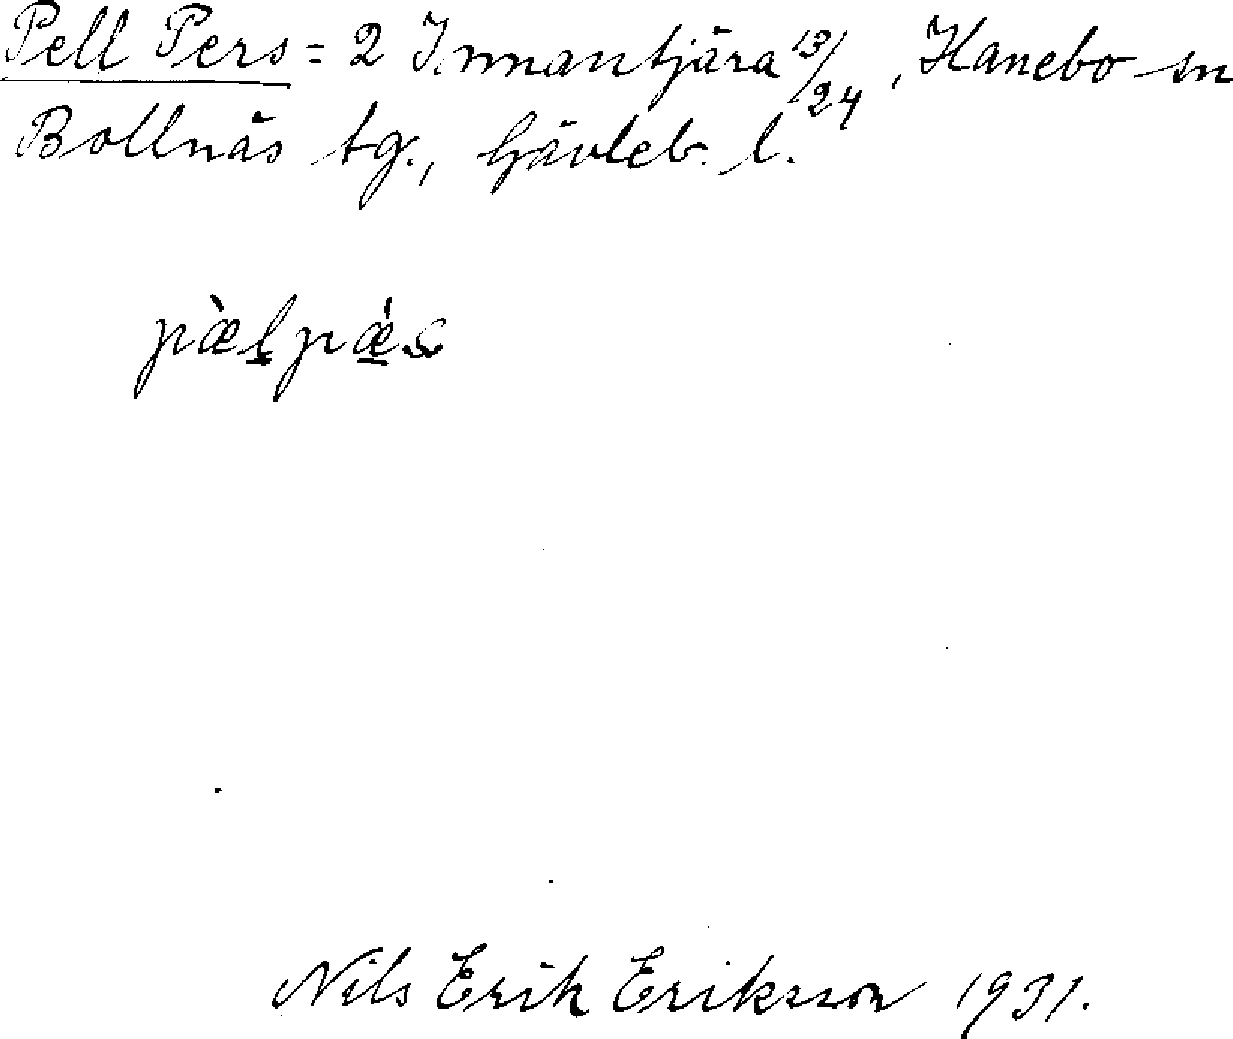 Pell Pers = 2 Innantjära 13/24, Hanebo sn
Bollnäs tg., Gävleb. l.
Nils Erik Eriksson 1931.